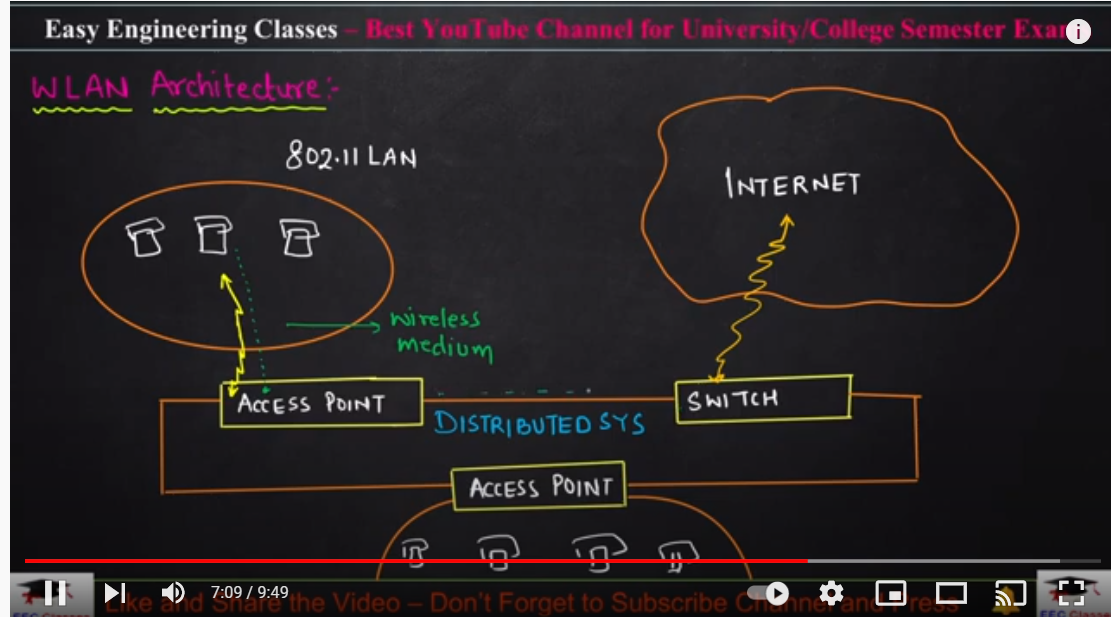 Easy Engineering Classes – Best YouTube Channel for University/College Semester Exam
WLAN Architecture:-
802.11 LAN
INTERNET
wireless
medium
ACCESS POINT
SWITCH
DISTRIBUTED SYS
ACCESS POINT
7:09 / 9:49
Like and Share the Video – Don't Forget to Subscribe Channel and Press
EEC Classes